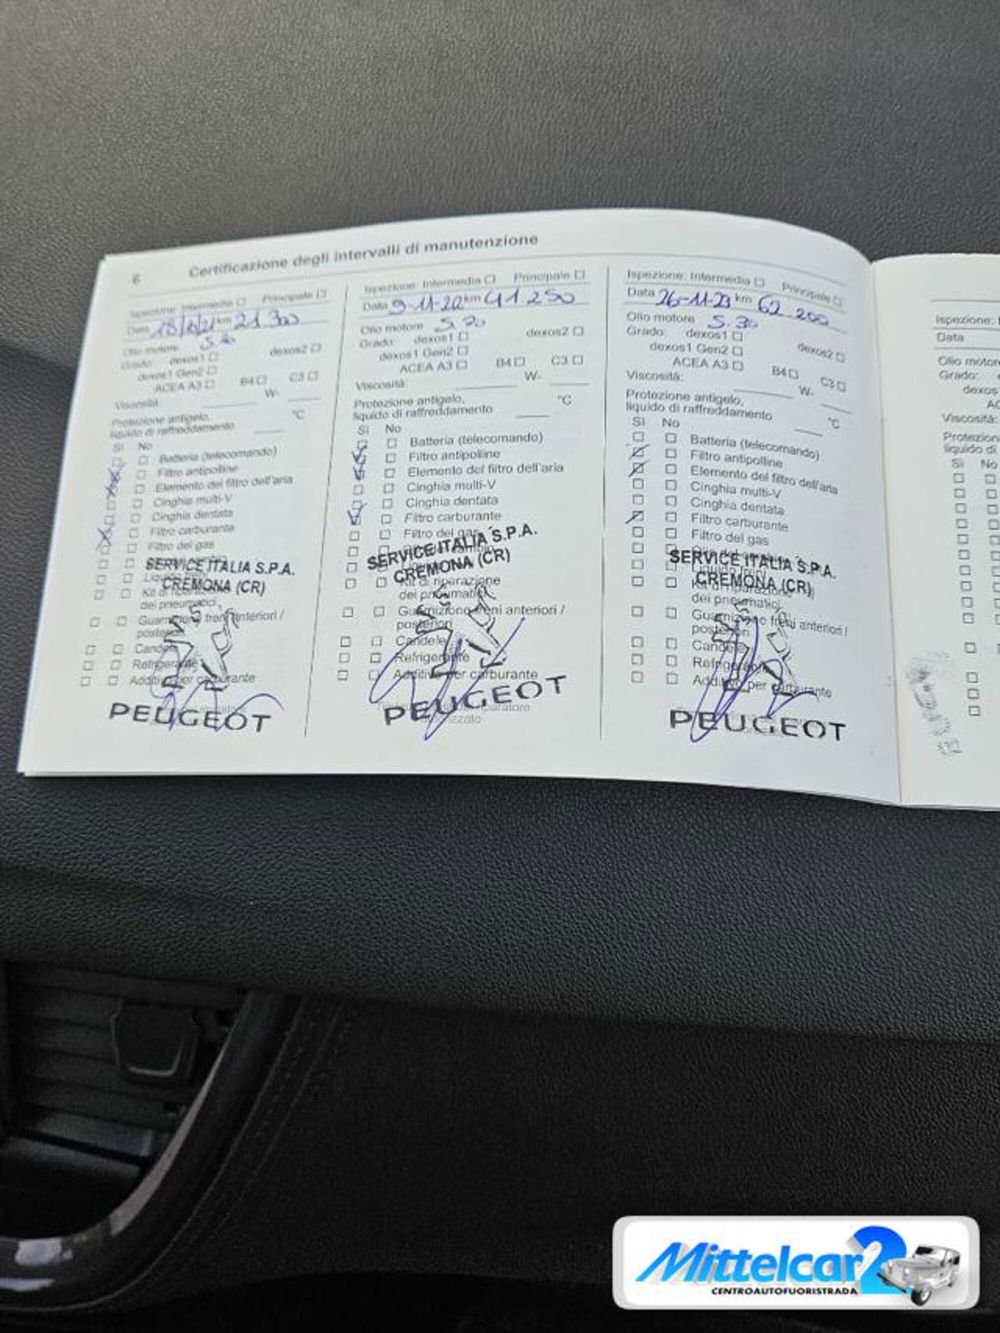 6
Certificazione degli intervalli di manutenzione
Ispezione: Intermedia Principale
Data 21 300
Olio motore S. 30
Grado: dexos1 dexos2
dexos1 Gen2
ACEA A3 B4 C3
Viscosità: W-
Protezione antigelo,
liquido di raffreddamento °C
Sì No
Batteria (telecomando)
Filtro antipolline
Elemento del filtro dell'aria
Cinghia multi-V
Cinghia dentata
Filtro carburante
Filtro del gas
SERVICE ITALIA S.P.A.
CREMONA (CR)
Kit di
dei pneumatici
Guarnizione freni anteriori /
posteriori
Candele
Refrigerante
Additivo per carburante
PEUGEOT
Ispezione: Intermedia Principale
Data 9-11-22 km 41 250
Olio motore S. 30
Grado: dexos1 dexos2
dexos1 Gen2
ACEA A3 B4 C3
Viscosità: W-
Protezione antigelo,
liquido di raffreddamento °C
Sì No
Batteria (telecomando)
Filtro antipolline
Elemento del filtro dell'aria
Cinghia multi-V
Cinghia dentata
Filtro carburante
Filtro del gas
SERVICE ITALIA S.P.A.
CREMONA (CR)
Kit di riparazione
dei pneumatici
Guarnizione freni anteriori /
posteriori
Candele
Refrigerante
Additivo per carburante
PEUGEOT
Ispezione: Intermedia Principale
Data 26-11-23 km 62 200
Olio motore S. 30
Grado: dexos1 dexos2
dexos1 Gen2
ACEA A3 B4 C3
Viscosità: W-
Protezione antigelo,
liquido di raffreddamento °C
Sì No
Batteria (telecomando)
Filtro antipolline
Elemento del filtro dell'aria
Cinghia multi-V
Cinghia dentata
Filtro carburante
Filtro del gas
SERVICE ITALIA S.P.A.
CREMONA (CR)
Kit di riparazione
dei pneumatici
Guarnizione freni anteriori /
posteriori
Candele
Refrigerante
Additivo per carburante
PEUGEOT
Ispezione:
Data
Olio motore
Grado:
dexos
AC
Viscosità:
Protezion
liquido di
Sì No
Mittelcar2
CENTROAUTOFUORISTRADA